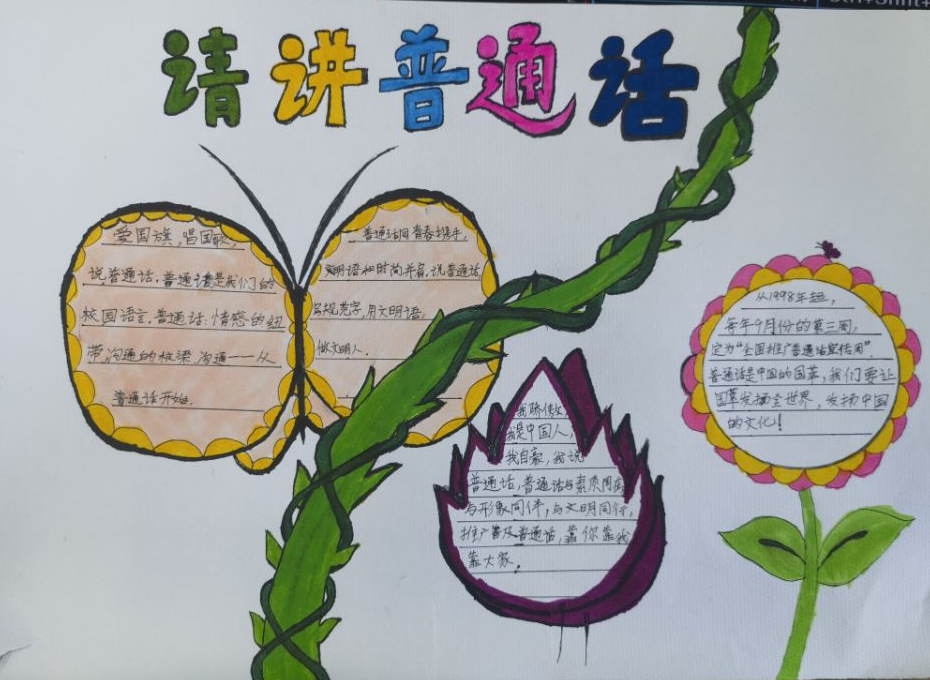 请讲普通话
爱国旗,唱国歌,
说普通话,普通话是我们的
校园语言,普通话:情感的纽
带,沟通的桥梁,沟通——从
普通话开始.
普通话同青春携手,
文明语和时尚并肩.说普通话,
写规范字,用文明语,
做文明人.
我骄傲,
我是中国人,
我自豪,我说
普通话,普通话与素质同在
与形象同伴,与文明同行,
推广普及普通话,靠你靠我
靠大家.
从1998年起,
每年9月份的第三周,
定为“全国推广普通话宣传周”.
普通话是中国的国萃,我们要让
国萃发扬全世界,发扬中国
的文化!